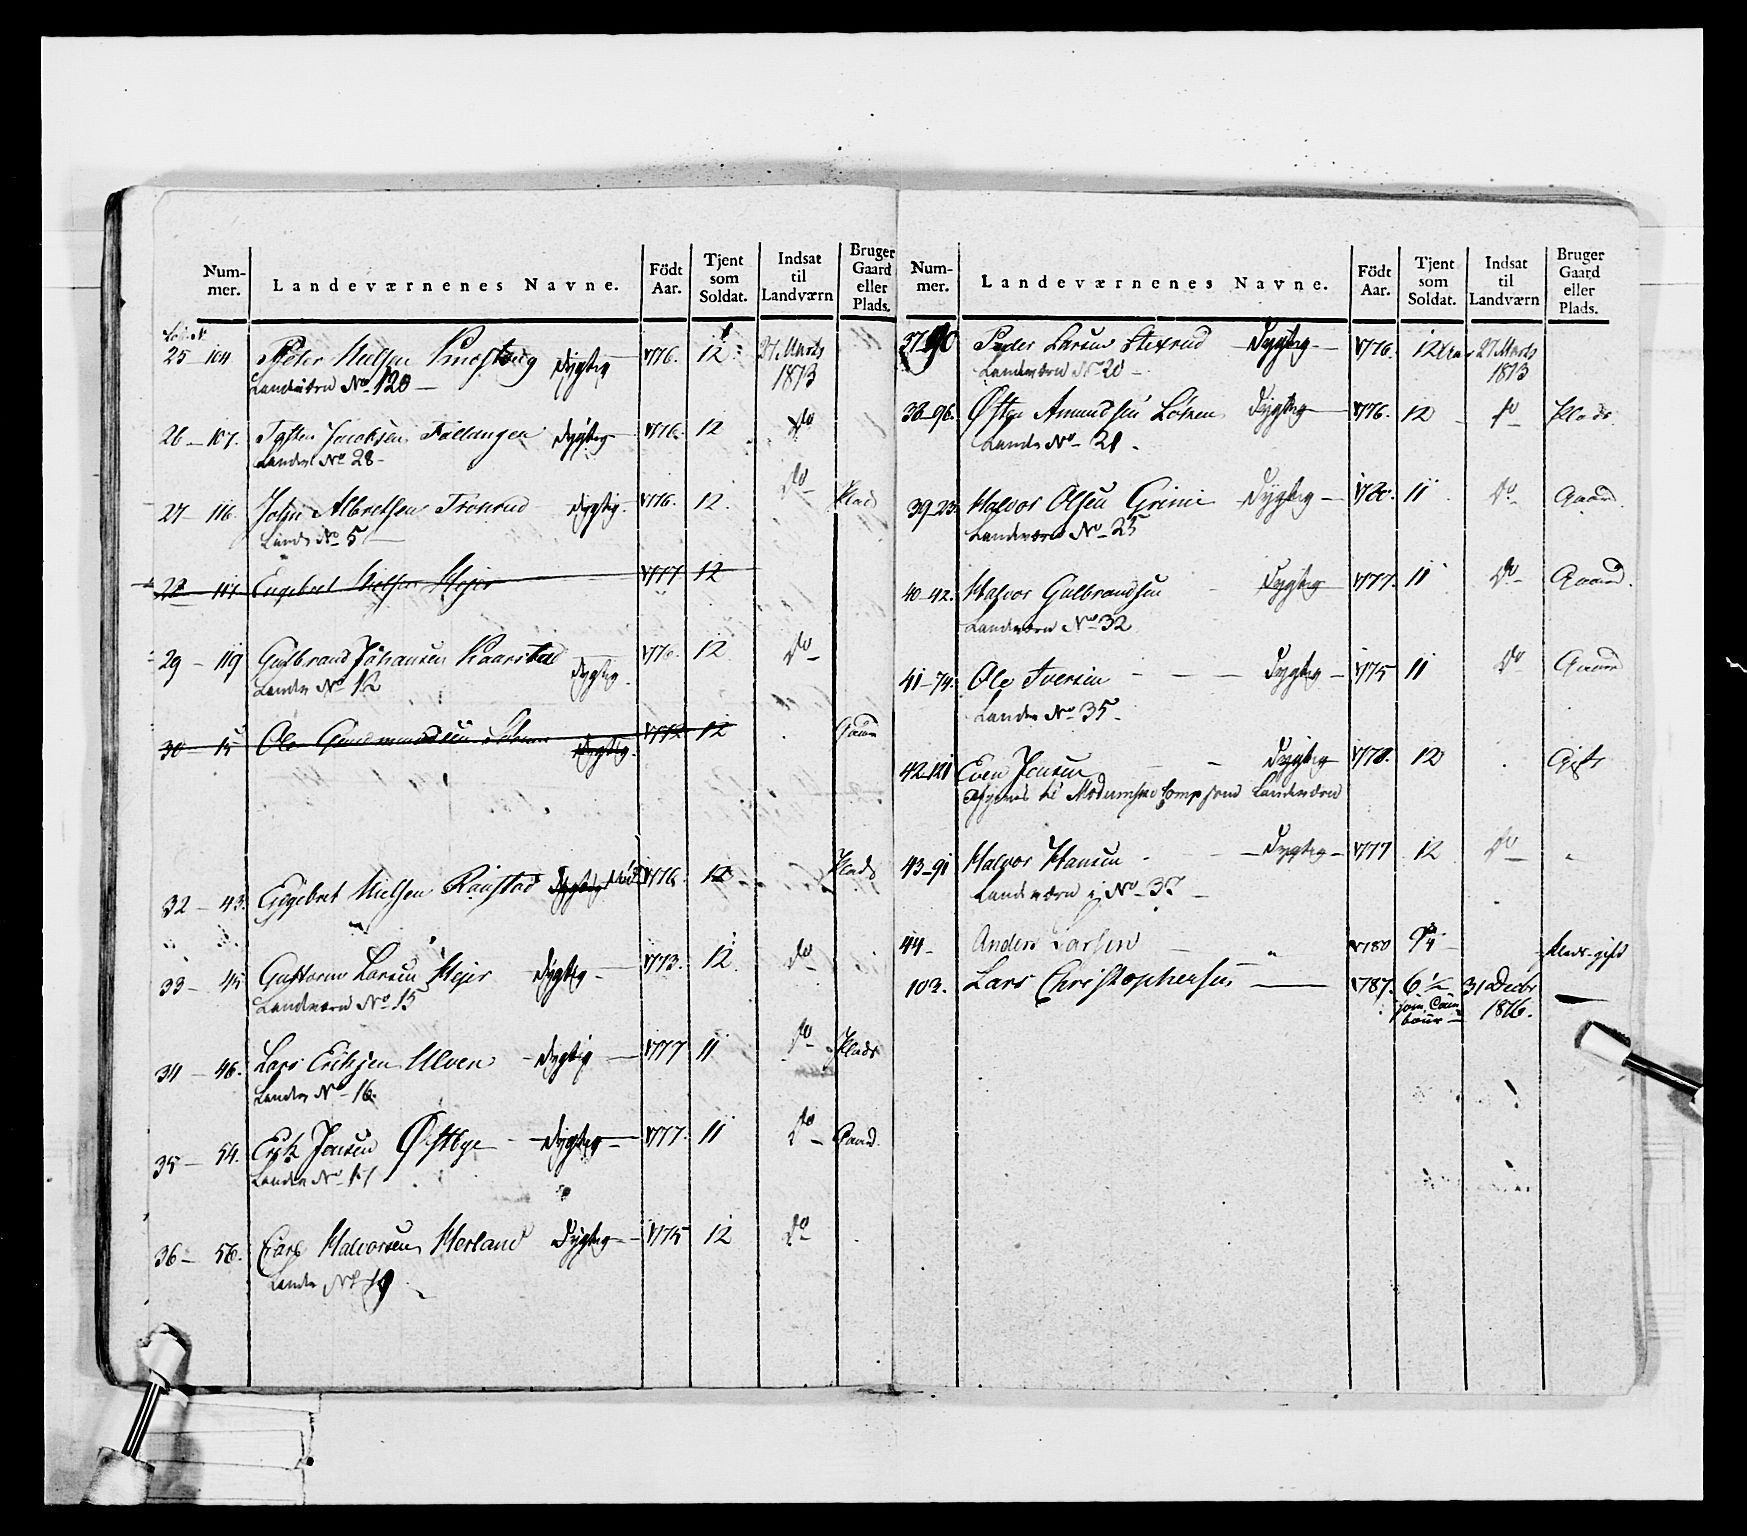 Num-
mer.
Landeværnenes Navne.
Födt
Aar.
Tjent
som
Soldat.
Indsat
til
Landværn
Bruger
Gaard
eller
Plads.
25 - 104 Peder Nielsen dygtig 1776. 12 27 Marts
Landværn No 120 1813
26 - 107. Jacobsen Fallangen dygtig 1776. 12 do
Landv No 28
27 - 116. John Albretsen Tronrud dygtig 1776. 12 do Plads
Landv No 5
28 Engebret Nielsen Hejer 1777 12
29 - 119 Gulbrand Johansen Kaarstad dygtig 12 do
Landv No 12
30 - 15 Ole Gudmundsen dygtig 1772 12 Gaard
32 - 43. Engebret Nielsen dygtig 1776. 12 Plads
33 - 45 Guttorm Larsen Hejer dygtig 1773. 12 do
Landværn No 15
34 - 46. Lars Eriksen Ulven dygtig 1777 11 do Plads
Landv No 16.
35 - 54. Erik Jensen Østbye dygtig 1777. 11 do Gaard
Landv No 17
36 - 56. Halvorsen Horland dygtig 1775 12 do
Landv No 19
Num-
mer.
Landeværnenes Navne.
Födt
Aar.
Tjent
som
Soldat.
Indsat
til
Landværn
Bruger
Gaard
eller
Plads.
37 90 Peder Larsen Stixrud dygtig 1776. 12 27 Marts
Landværn No 20 1813
38 - 96. Amundsen dygtig 1776. 12 do Plads
Landv No 21
39 - 23. Halvor Olsen Grime dygtig 11 do Gaard
Landværn No 25
40 - 42. Halvor Gulbrandsen dygtig 1777. 11 do Gaard.
Landværn No 32
41 - 74. Ole Iversen dygtig 1775 11 do Gaard
Landv No 35
42 - 121 Even Jensen dygtig 1778. 12 Gift
til Modumske Comp som Landeværn
43 - 91 Halvor Hansen dygtig 1777 12 do "
Landværn No 37
44 - Anders Larsen " 1780 9 Plads - gift
102. Lars Christophersen 1787. 6 1/2 31 Decbr
som Tam- 1816.
bour